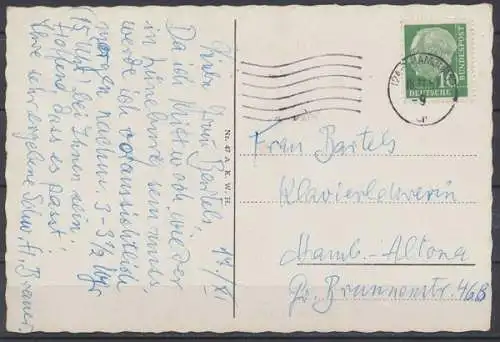 Liebe Frau Bartels!
17./XI
Da ich Mittwoch wieder
in Lüneburg sein muss,
werde ich voraussichtlich
morgen nachm. 3-3½ Uhr
(15 Uhr) bei Ihnen sein.
Hoffentl. dass es passt!
Ihre sehr ergebene Schw. A. Brauer.
Nr. 47 A. K. W. H.
10
DEUTSCHE
BUNDESPOST
Frau Bartels
Klavierlehrerin
Hamb.-Altona
Gr. Brunnenstr. 46B